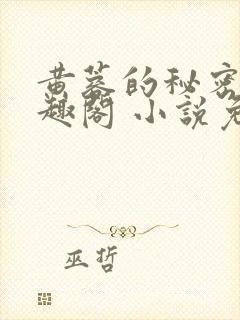 黄蓉的秘密
趣阁 小说免
巫哲